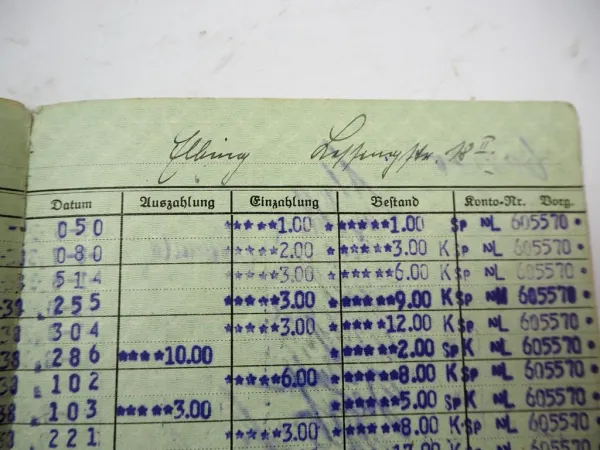 Elbing Lessingstr. 18 II
Datum Auszahlung Einzahlung Bestand Konto-Nr. Vorg.
050 ★★★★★1.00 ★★★★★★1.00 Sp NL 605570 •
080 ★★★★★2.00 ★★★★★★3.00 K Sp NL 605570 •
514 ★★★★★3.00 ★★★★★★6.00 K Sp NL 605570 •
255 ★★★★★3.00 ★★★★★★9.00 K Sp 605570 •
304 ★★★★★3.00 ★★★★★12.00 K Sp NL 605570 •
286 ★★★★10.00 ★★★★★2.00 Sp K NL 605570 •
102 ★★★★★6.00 ★★★★★8.00 K Sp NL 605570 •
103 ★★★★★3.00 ★★★★★5.00 Sp K NL 605570 •
221 ★★★★★3.00 ★★★★★8.00 K Sp NL 605570 •